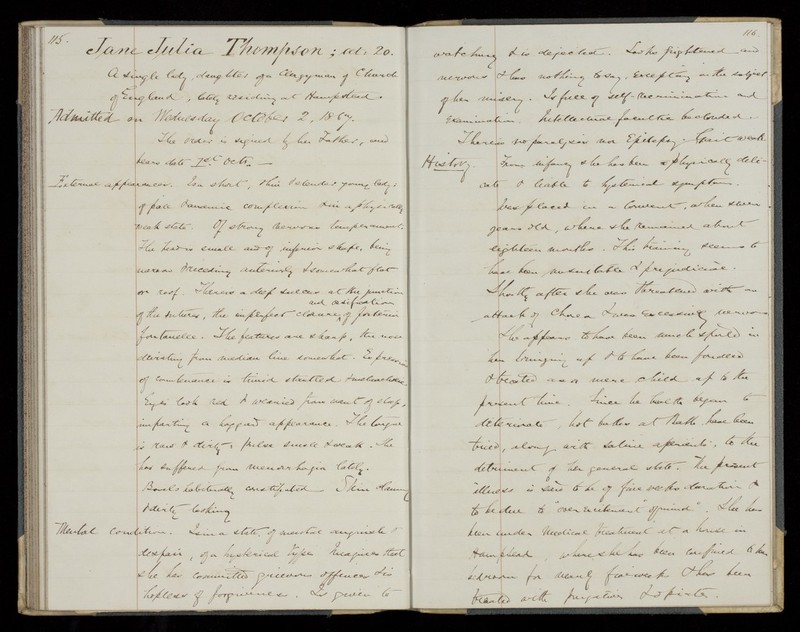 115.
Jane Julia Thompson; aet: 20.
A single lady, daughter of a Clergyman of Church
of England, lately residing at Hampstead.
Admitted on Wednesday October 2, 1867.
The order is signed by her Father, and
bears date 1st Octr.
External appearances. Is a short, thin & slender young lady,
of pale & anaemic complexion & in a physically
weak state. Of strong nervous temperament.
The head is small and of inferior shape, being
narrow & receding anteriorly & somewhat flat
on roof. There is a deep sulcus at the junction
of the sutures, the imperfect closure and ossification of posterior
fontanelle. The features are sharp, the nose
deviating from median line somewhat. Expression
of countenance is timid startled &
Eyes look red & wearied from want of sleep,
imparting a haggard appearance. The tongue
is raw & dirty, pulse small & weak. She
has suffered from menorrhagia lately.
Bowels habitually constipated. Skin clammy
& dirty looking
Mental condition. Is in a state of mental anguish &
despair, of a hysterical type. Imagines that
she has committed grievous offences & is
hopeless of forgiveness. Is given to
116.
watching & is dejected. Looks frightened and
nervous & has nothing to say, excepting on the subject
of her misery. Is full of self-recrimination and
examination. Intellectual faculties beclouded.
There is no paralysis nor Epilepsy. Gait weak.
History. From infancy she has been physically deli-
cate & liable to hysterical symptoms.
Was placed in a Convent, when seven
years old, where she remained about
eighteen months. This training seems to
have been unsuitable & prejudicial.
Shortly after she was threatened with an
attack of Chorea & was excessively nervous
She appears to have been much spoiled in
her bringing up & to have been fondled
& treated as a mere child up to the
present time. Since her health began to
deteriorate, hot baths at Bath have been
tried, along with saline aperients, to the
detriment of her general state. The present
illness is said to be of five weeks duration &
to be due to "over excitement of mind". She has
been under Medical treatment at a house in
Hampstead, where she has been confined to her
bedroom for nearly four weeks & has been
treated with purgatives &